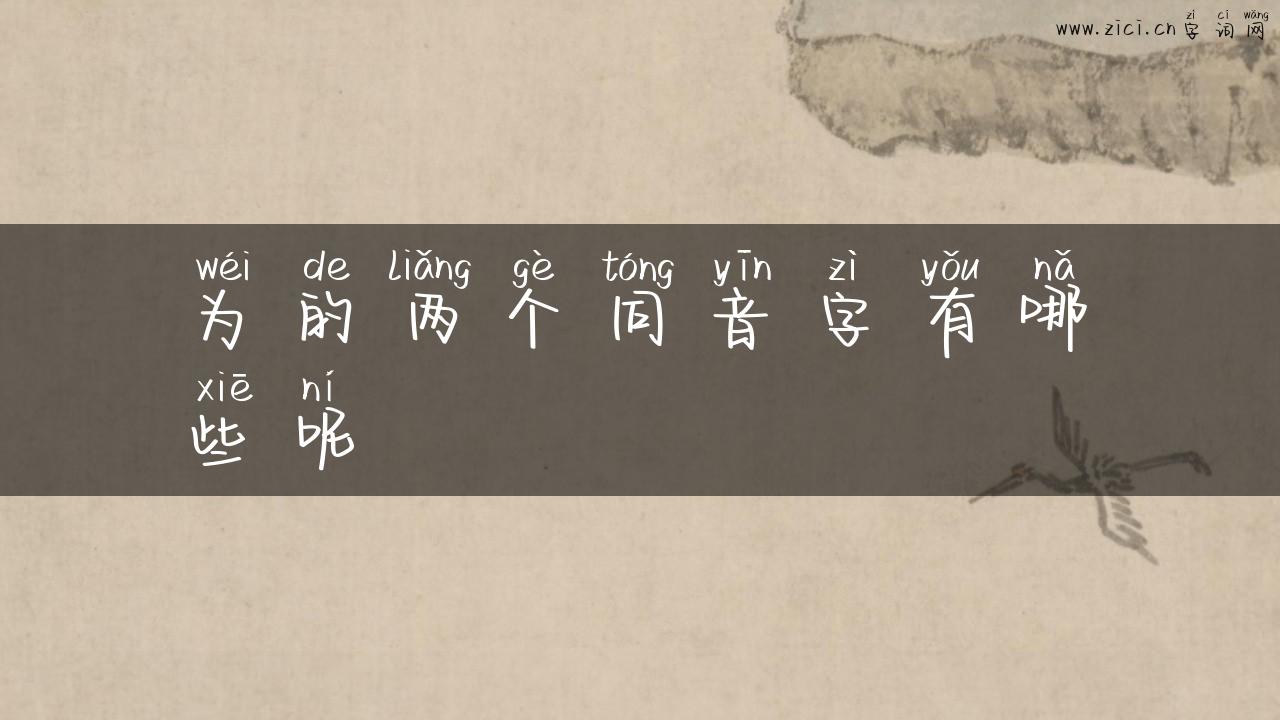 zì cí wǎng
www.zici.cn 字词网
wéi de liǎng gè tóng yīn zì yǒu nǎ
为的两个同音字有哪
xiē ní
些呢